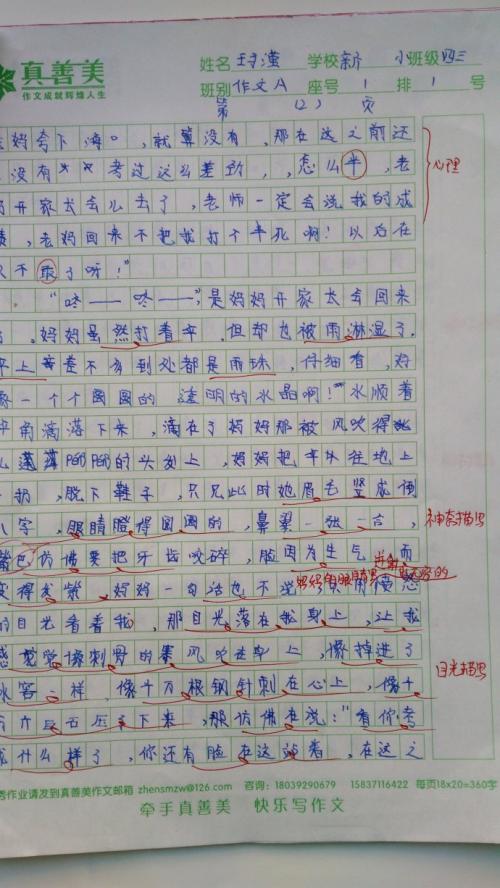 真善美
作文成就辉煌人生
姓名 学校 新 小 班级 四三
班别 作文A 座号 1 排 1 号
第 (2) 页
妈夸下海口,就算没有,那在这之前还
没有 考过这么差劲,怎么半,老
开家长会儿去了,老师一定会说我的成
绩,老妈回来不把我打个半死啊!以后在
不敢了呀!"
"咚——咚——",是妈妈开家长会回来
。妈妈虽然打着伞,但却也被雨淋湿了,
伞上 差不多到处都是雨珠,仔细看,好
像一个个圆圆的 透明的水晶啊!"水顺着
伞角滴落下来,滴在了妈妈那被风吹得
蓬蓬 的头发上,妈妈把伞从往地上
一扔,脱下鞋子,只见此时她眉毛竖成倒
八字,眼睛瞪得圆圆的,鼻翼一张一合,
嘴巴仿佛要把牙齿咬碎,脸因为生气 而
变得发紫,妈妈一句话也不说 愤怒
的目光看着我,那目光落在我身上,让我
感觉像刺骨的暴风吹在身上,像掉进了
冰窖一样,像千万根钢针刺在心上,像十
压下来,那仿佛在说:"看你考
成什么样了,你还有脸在这站着,在这之
心理
神态描写
目光描写
作业请发到真善美作文邮箱 zhensmzw@126.com 咨询:18039290679 15837116422 每页18x20=360字
牵手真善美 快乐写作文